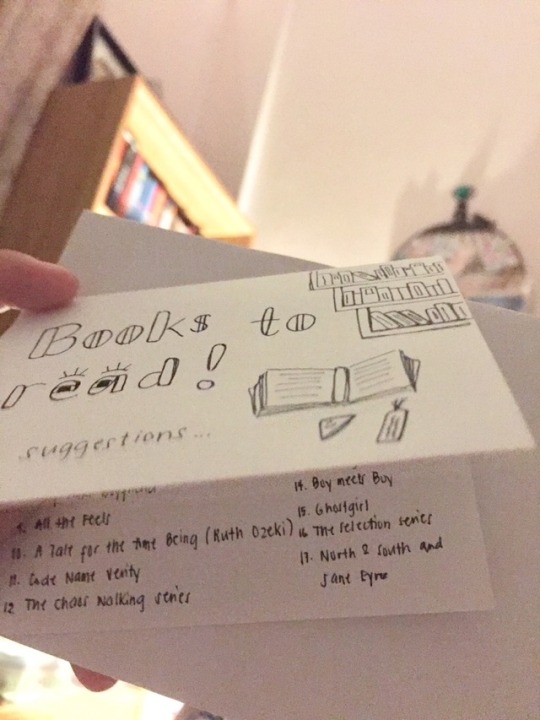 Books to
read!
suggestions...
9. All the Feels
10. A Tale for the Time Being (Ruth Ozeki)
11. Code Name Verity
12 The Chaos Walking series
14. Boy meets Boy
15. Ghostgirl
16 The Selection series
17. North & South and
Jane Eyre